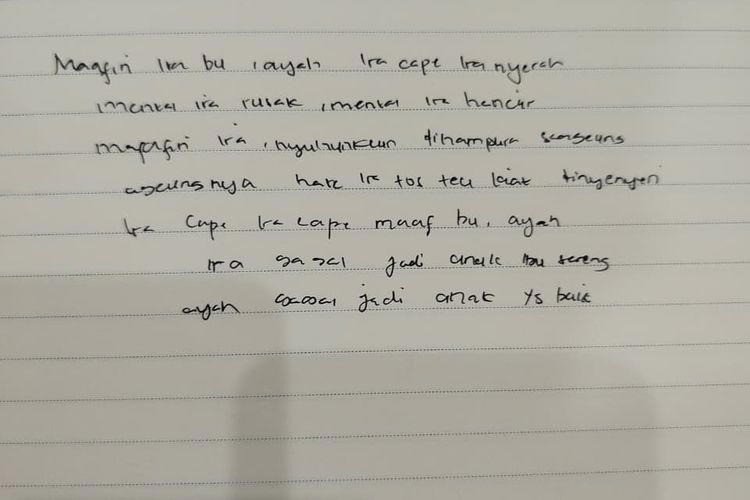 Maafin Ira bu, ayah Ira cape Ira nyerah
mental ira rusak, mental Ira hancur
maafin Ira, nyuhunkeun dihampura
ageungnya hate Ira tos teu kiat
Ira Cape Ira cape maaf bu, ayah
Ira gagal jadi anak Ibu sareng
ayah gagal jadi anak yg baik